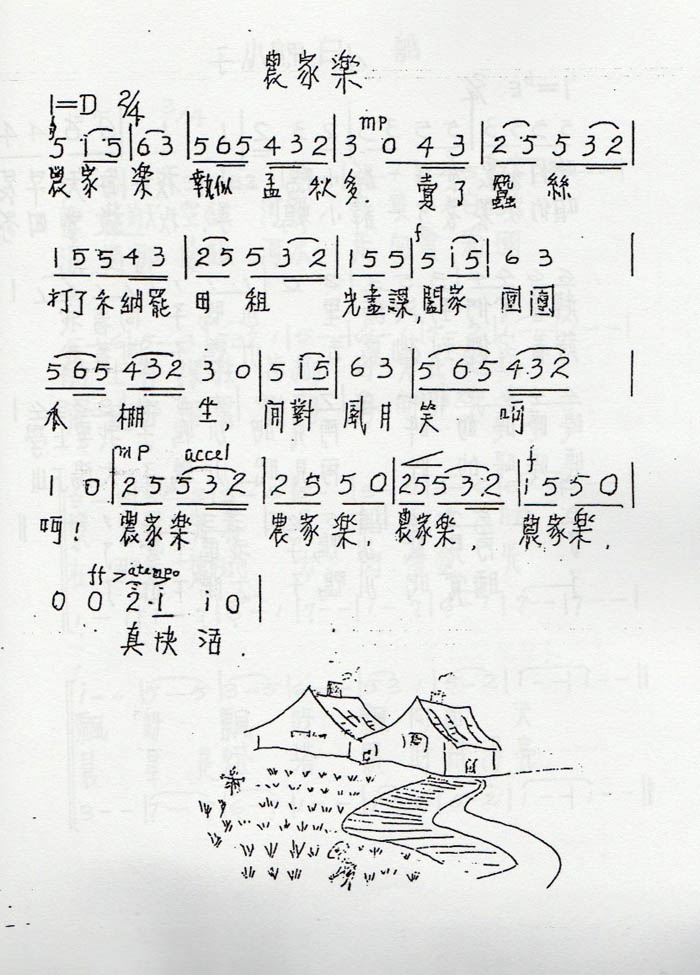 農家樂
1=D 2/4
f mp
5 i 5 | 6 3 | 5 6 5 4 3 2 | 3 0 4 3 | 2 5 5 3 2 |
農 家 樂 似 孟 秋 多. 賣了 蠶 絲
f
1 5 5 4 3 | 2 5 5 3 2 | 1 5 5 | 5 i 5 | 6 3 |
打了禾納罷 田 租 盡課, 闔家 團
5 6 5 4 3 2 3 0 | 5 i 5 | 6 3 | 5 6 5 4·3 2 |
瓜 棚 坐, 閒對 風月 笑 呵
mp accel f
1 0 | 2 5 5 3 2 | 2 5 5 0 | 2 5 5 3·2 | i 5 5 0 |
呵! 農家樂 農家樂, 農家樂, 農家樂.
ff > a tempo
0 0 2·i i 0 |
真快活.